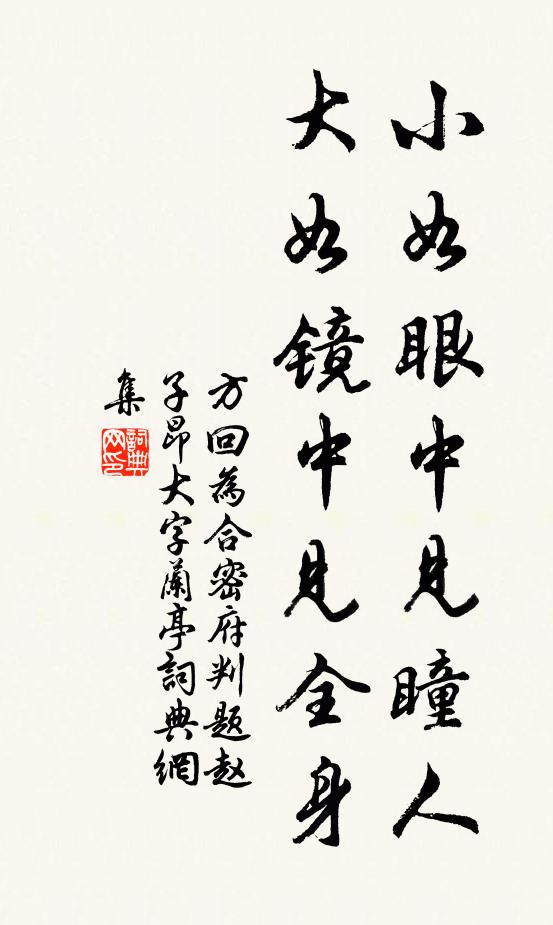 小如眼中見瞳人
大如镜中見全身
方回為合密府判題赵
子昂大字蘭亭詞典網
集
詞典
网印